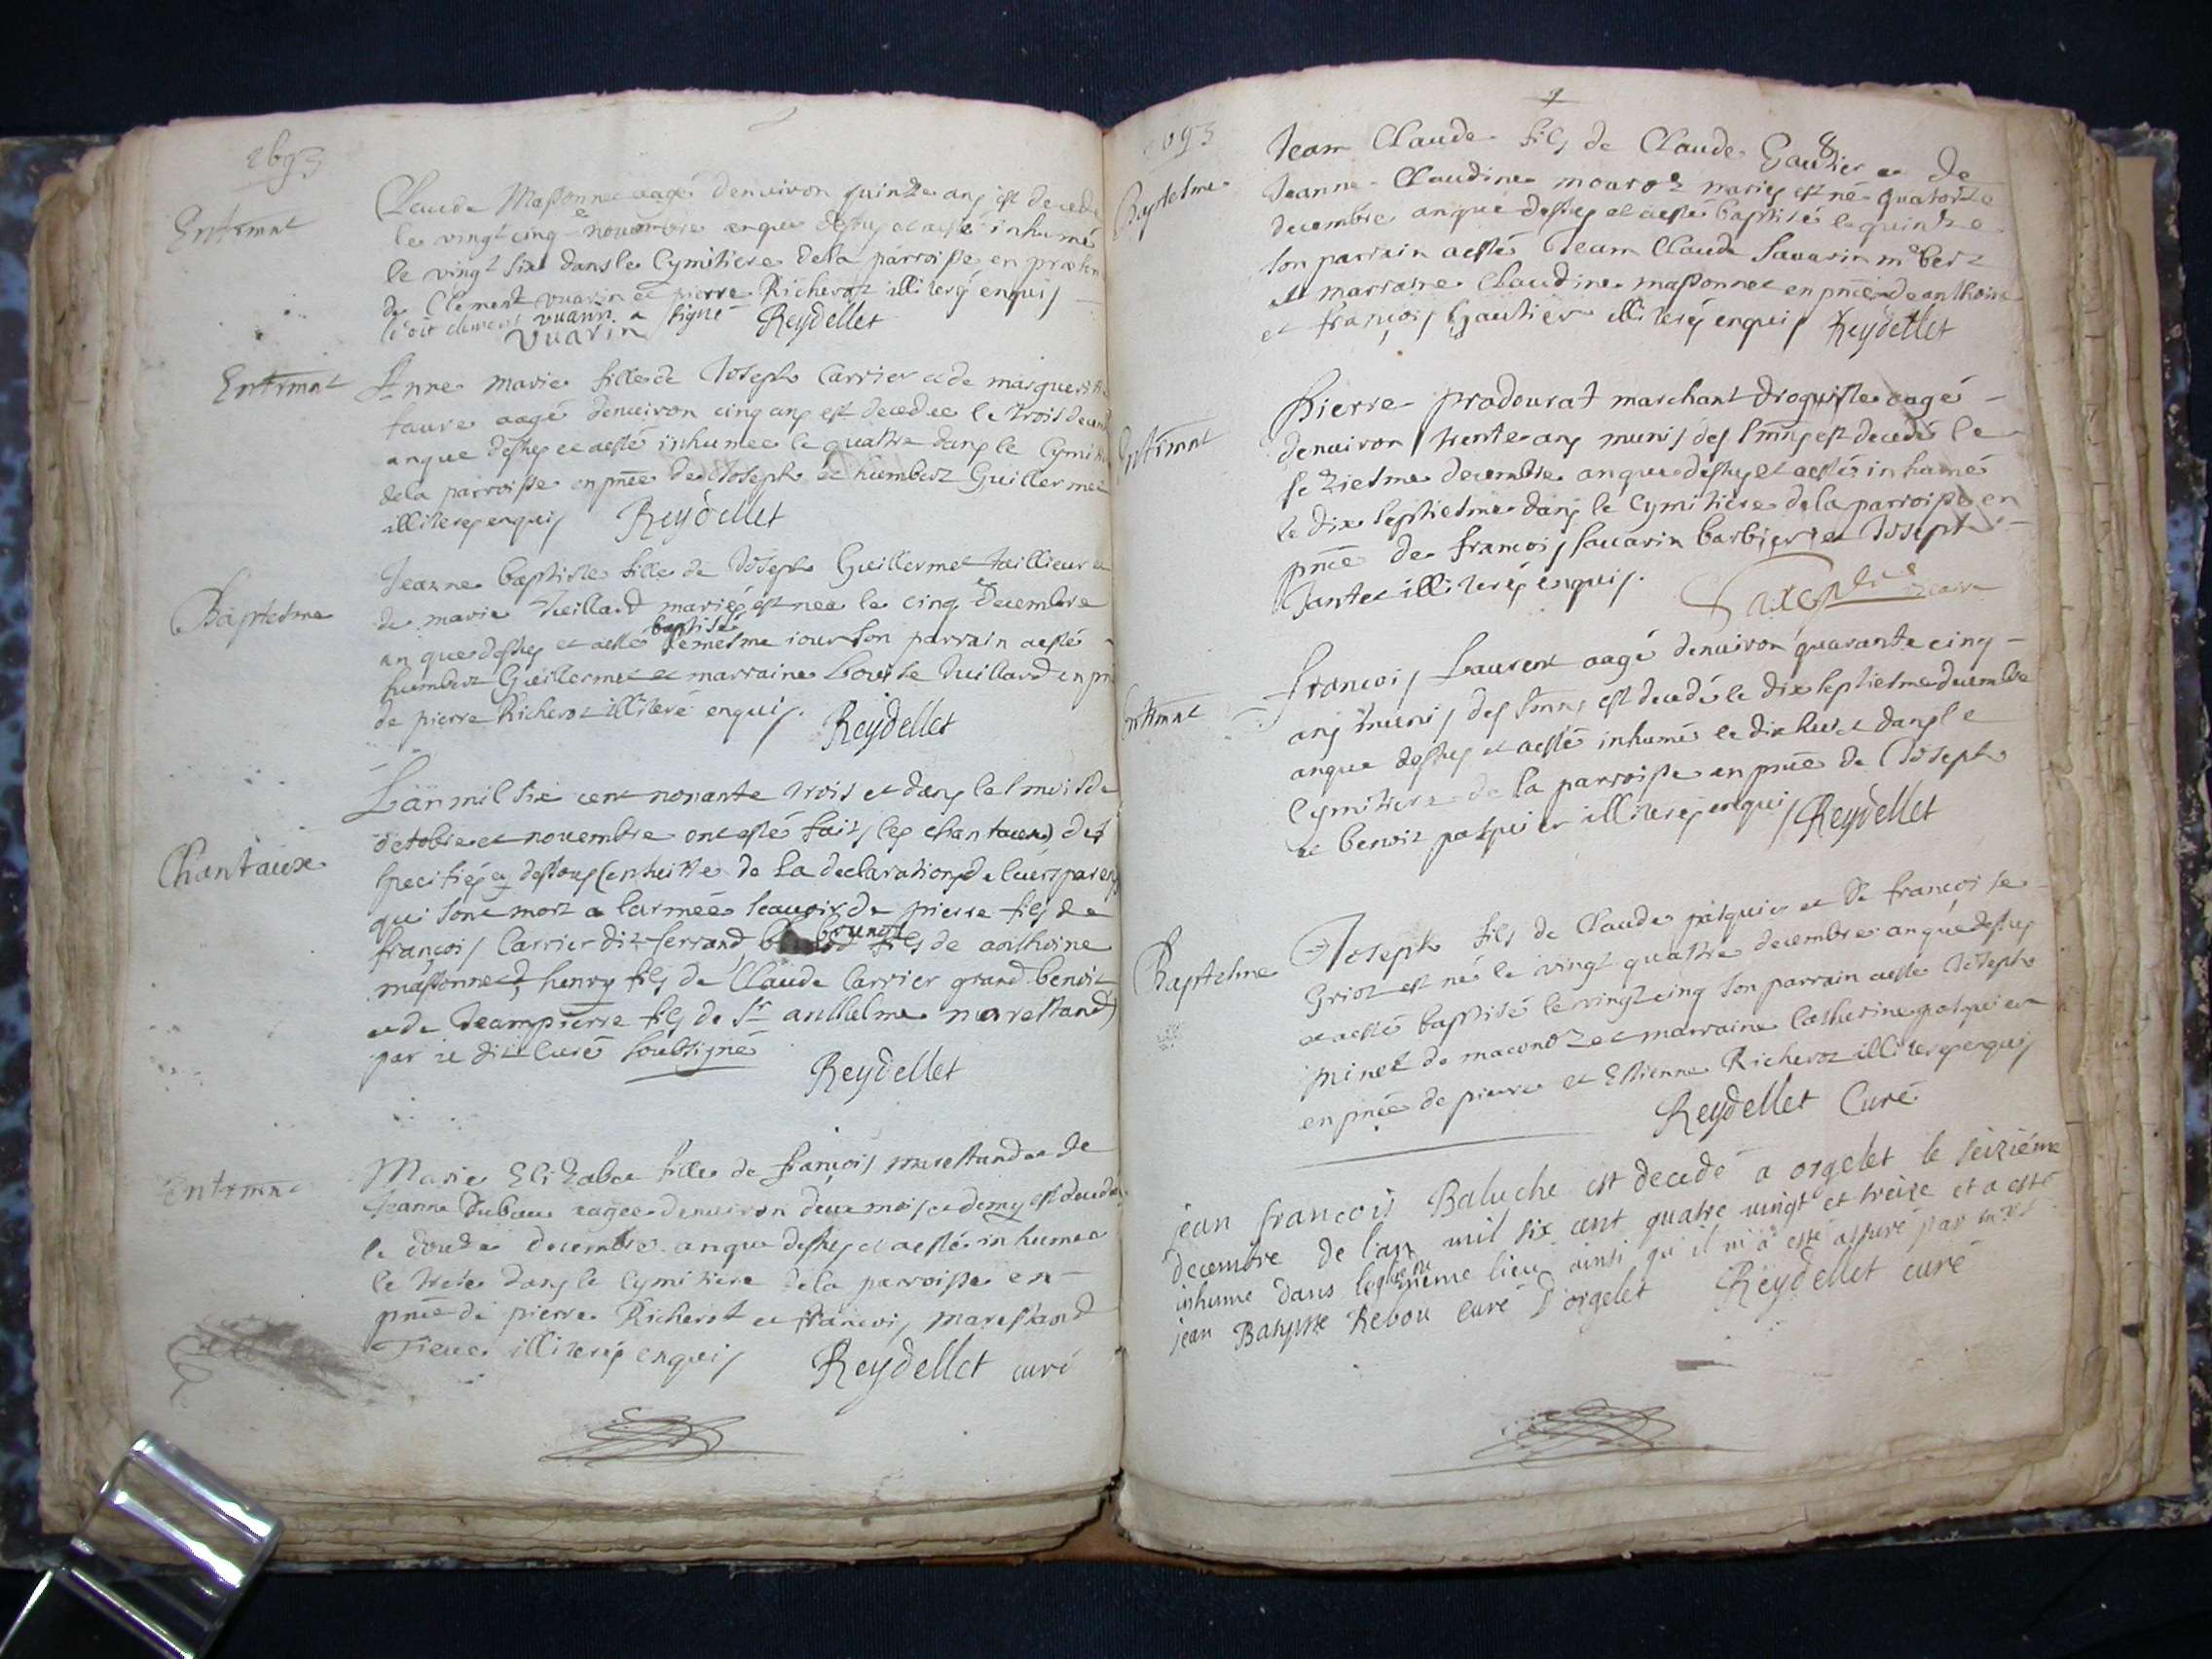 1693
Enterrmnt
Claude Massonnet aagé denuiron quinze ans est decedé
le vingt cinq nouembre anque dessus et aesté inhumé
le vingt six dans le Cymitiere dela parroisse en presen
de Clement vuarin et pierre Richerot illiterés enquis
ledit clement vuarin a signé Reydellet
vuarin
Enterrmnt
Anne marie fille de Joseph Carrier et de marguerite
faure aagé denuiron cinq ans est decedee le trois decem
anque dessus et aesté inhumee le quattre dans le Cymiti
dela parroisse en pnce de Joseph et humbert Guillermet
illiteres enquis Reydellet
Baptesme
Jeanne baptiste fille de Joseph Guillermet taillieur et
de marie Vuillard mariés est nee le cinq decembre
an que dessus et aesté baptisé le mesme iour son parrain aesté
humbert Guillermet et marraine Louise Vuillard en pn
de pierre Richerot illiteré enquis. Reydellet
Chantaux
Lan mil six cent nonante trois et dans les mois de
octobre et nouembre ont esté faits les chantaux des
specifiés cy dessous ensuitte de la declaration de leurs parens
qui sont mort a larmée scauoir de pierre fils de
françois Carrier dit ferrand, fils de anthoine
massonnet, henry fils de Claude Carrier grand benoit
et de Jeampierre fils de Sr anthelme marestand
par ie dit curé soubsigné
Reydellet
Enterrmnt
Marie Elizabet fille de françois marestand et de
Jeanne Dubau aagee denuiron deux mois et demy est decedee
le douze decembre anque dessus et aesté inhumee
le treze dans le Cymitiere dela parroisse en
pnce de pierre Richerot et francois marestand
illiterés enquis Reydellet curé
1693
Baptesme
Jean Claude fils de Claude Gautier et de
Jeanne Claudine mouroz mariés est né quatorze
decembre anque dessus et aesté baptisé le quinze
son parrain aesté Jean Claude Sauarin
et marraine Claudine massonnet en pnce de anthoine
et françois Gautier illiterés enquis Reydellet
Enterrmnt
Pierre pradourat marchant droguiste aagé
denuiron trente ans munis des smns est decedé le
seziesme decembre anque dessus et aesté inhumé
le dix septiesme dans le Cymitiere dela parroisse en
pnce de francois sauarin barbier et Joseph
Jantet illiterés enquis.
Enterrmnt
francois Laurent aagé denuiron quarante cinq
ans munis des smns est decedé le dix septiesme decembre
anque dessus et aesté inhumé le dix huit dans le
Cymitiere de la parroisse en pnce de Joseph
et benoit pasquier illiterés enquis Reydellet
Baptesme
Joseph fils de Claude pasquier et de françoise
Griot est né le vingt quattre decembre anque dessus
et aesté baptisé le vingt cinq son parrain aesté Joseph
minet de maconod et marraine Catherine pasquier
en pnce de pierre et Estienne Richerot illiterés enquis
Reydellet Curé
jean françois Baluche est decedé a orgelet le seizième
decembre de l'an mil six cent quatre vingt et treize et a esté
inhumé dans leglise du meme lieu ainsi qu'il m'a esté assuré par
jean Baptiste Rebou curé d'orgelet Reydellet curé